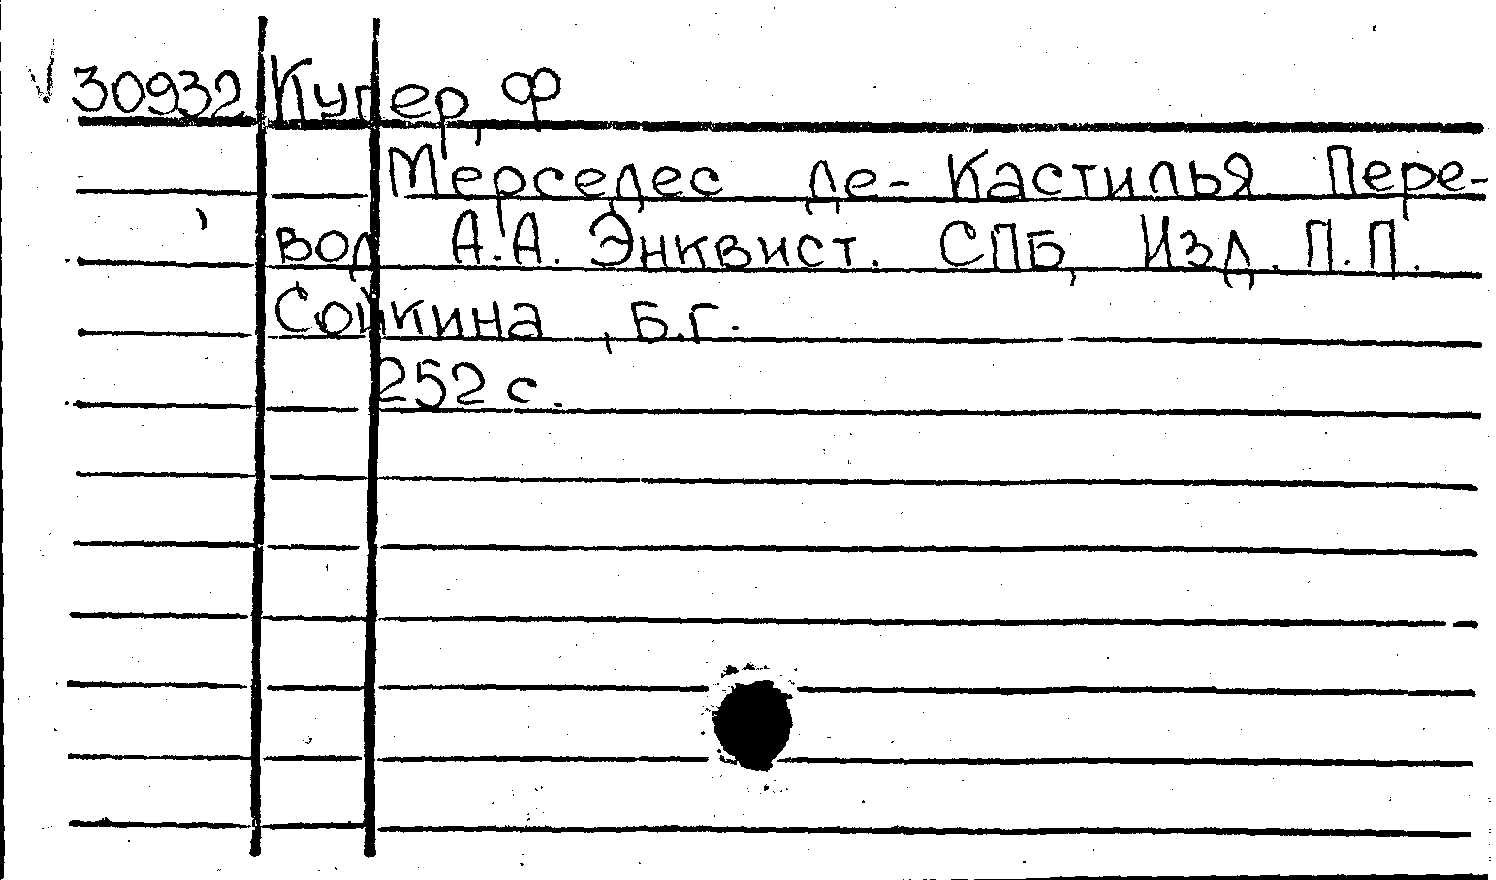 30932 Купер, Ф
Мерседес де-Кастилья Пере-
вод А.А. Энквист. СПБ, Изд. П.П.
Сойкина, б.г.
252 с.